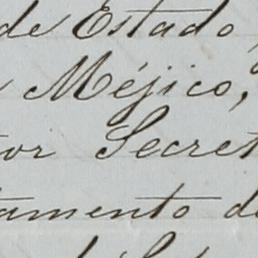 de Estado,
Méjico,
or Secret
tamento d